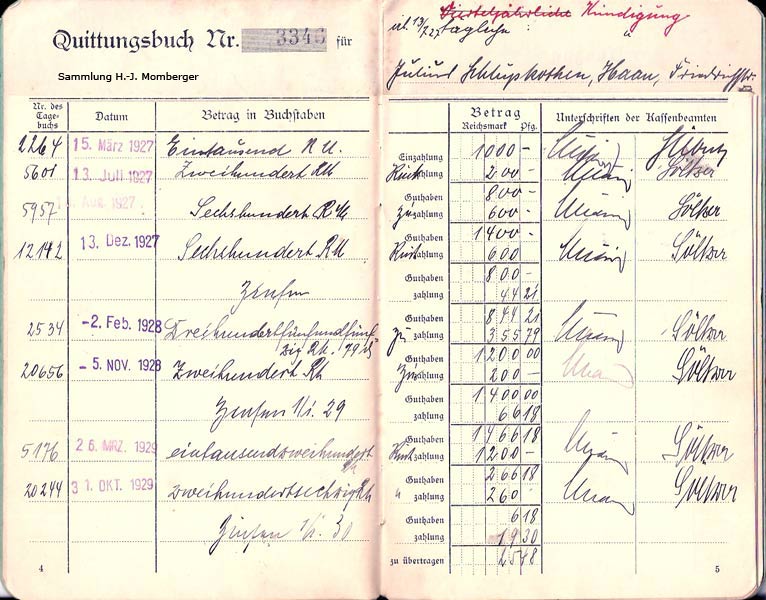 Quittungsbuch Nr. 3346 für
Sammlung H.-J. Momberger
Vierteljährliche Kündigung
täglich
Julius Schlupkothen, Haan, Friedrichstr.
Nr. des Tagebuchs
Datum
Betrag in Buchstaben
Betrag
Reichsmark Pfg.
Unterschriften der Kassenbeamten
2264 15. März 1927 Eintausend R.M. Einzahlung 1000 –
5601 13. Juli 1927 Zweihundert RM Rückzahlung 200 –
Guthaben 800 –
5957 Aug. 1927 Sechshundert RM Zuzahlung 600 – Söltzer
Guthaben 1400 –
12142 13. Dez. 1927 Sechshundert RM Rückzahlung 600 Söltzer
Guthaben 800 –
Zinsen zahlung 44 21
Guthaben 844 21
2534 – 2. Feb. 1928 Dreihundertfünfundfünfzig RM. 79 Zuzahlung 355 79 Söltzer
Guthaben 1200 00
20656 – 5. NOV. 1928 Zweihundert RM Zuzahlung 200 – Söltzer
Guthaben 1400 00
Zinsen 1/1. 29 zahlung 66 18
Guthaben 1466 18
5176 26. MRZ. 1929 eintausendzweihundert RM Rückzahlung 1200 – Söltzer
Guthaben 266 18
20244 31. OKT. 1929 zweihundertsechzig RM " zahlung 260 Söltzer
Guthaben 6 18
Zinsen 1/1. 30 zahlung 19 30
zu übertragen 25 48
4
5